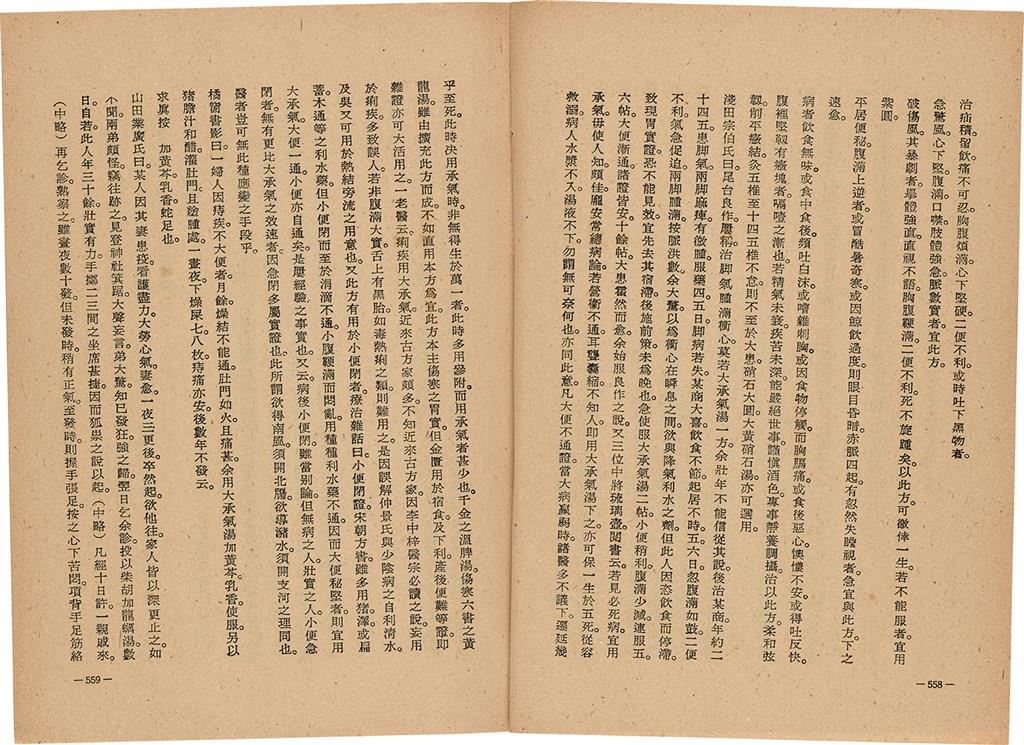 治疝積留飲痛不可忍胸腹煩滿心下堅硬二便不利或時吐下黑物者。
急驚風心下堅腹滿口噤肢體強急脈數實者宜此方。
破傷風其暴劇者舉體強直直視不語胸腹鞕滿二便不利死不旋踵矣以此方可徼倖一生若不能服者宜用
紫圓。
平居便秘腹滿上逆者或冒酷暑奇寒或因鯨飲過度則眼目昏暗赤脈四起有忽然失瞻視者急宜與此方。下之
速愈。
病者飲食無味或食中食後頻吐白沫或嘈雜刺胸或因食物停觸而胸膈痛或食後惡心懊憹不安或得吐反快。
腹裡堅靱有癥塊者膈噎之漸也若精氣未衰疾苦未深能嚴絕世事謹愼酒色。專事靜養調攝治以此方。柔和弦
靱削平癥結灸五椎至十四五椎不怠則不至於大患硝石大圓大黃硝石湯亦可選用
淺田宗伯氏曰尾台良作屢稱治脚氣腫滿衝心莫若大承氣湯一方余壯年不能信從其說後治某商年約二
十四五患脚氣兩脚麻痺有微腫服藥四五日脚病若失某商大喜飲食不節起居不時五六日忽腹滿如鼓二便
不利氣急促迫兩脚腫滿按脈洪數余大驚以爲衝心在瞬息之間欲與降氣利水之劑但此人因恣飲食而停滯
致現胃實證恐不能見效宜先去其宿滯後施前策未爲晚也急使服大承氣湯二帖小便稍利腹滿少減連服五
六帖大便漸通諸證皆安十餘帖大患霍然而愈余始服良作之說又三位中將琉璃壺閱書云若見必死病宜用
承氣毋使人知頗佳龐安常總病論若營衞不通耳聾囊縮不知人即用大承氣湯下之亦可保一生於五死從容
救溺病人水漿不入湯液不下勿謂無可奈何也亦同此意凡大便不通證當大病羸弱時諸醫多不議下遷延幾
—558—
乎至死此時決用承氣時非無得生於萬一者此時多用參附而用承氣者甚少也千金之溫脾湯傷寒六書之黃
龍湯雖由擴充此方而成不如直用本方爲宜此方本主傷寒之胃實但金匱用於宿食及下利產後便難等證即
雜證亦可大活用之一老醫云痢疾用大承氣近來古方家頗多不知近來古方家因李中梓醫宗必讀之說妄用
於痢疾多致誤人若非腹滿大實舌上有黑胎如毒熱痢之類則難用之是因誤解仲景氏與少陰病之自利清水。
及吳又可用於熱結旁流之用意也又此方有用於小便閉者療治雜話曰小便閉證宋朝方書雖多用猪澤或扁
蓄木通等之利水藥但小便閉而至於涓滴不通小腹鞕滿而悶亂用種種利水藥不通因而大便秘堅者則宜用
大承氣大便一通小便亦自通矣是屢經驗之事實也又云病後小便閉雖當別論但無病之人壯實之人小便急
閉者無有更比大承氣之效速者因急閉多屬實證也此所謂欲得南風須開北牖欲導瀦水須開支河之理同也。
醫者豈可無此種應變之手段乎。
橘窗書影曰一婦人因痔疾不大便者月餘燥結不能通肛門如火且痛甚余用大承氣湯加黃芩乳香使服另以
猪膽汁和醋灌肛門且塗腫處一晝夜下燥屎七八枚痔痛亦安後數年不發云。
求眞按　加黃芩乳香蛇足也。
山田業廣氏曰某人因其妻患疫看護盡力大勞心氣妻愈一夜三更後卒然起欲他往家人皆以深更止之如
不聞兩弟頗怪竊往跡之見登神社箕踞大聲妄言弟大驚知已發狂強之歸翌日乞余診投以柴胡加龍蠣湯數
日自若此人年三十餘壯實有力手擲二三間之坐席甚捷因而狐祟之說以起（中略）凡經十日許一親戚來。
（中略）再乞診熟察之雖晝夜數十發但未發時稍有正氣至發時則握手張足按之心下苦悶項背手足筋絡
—559—